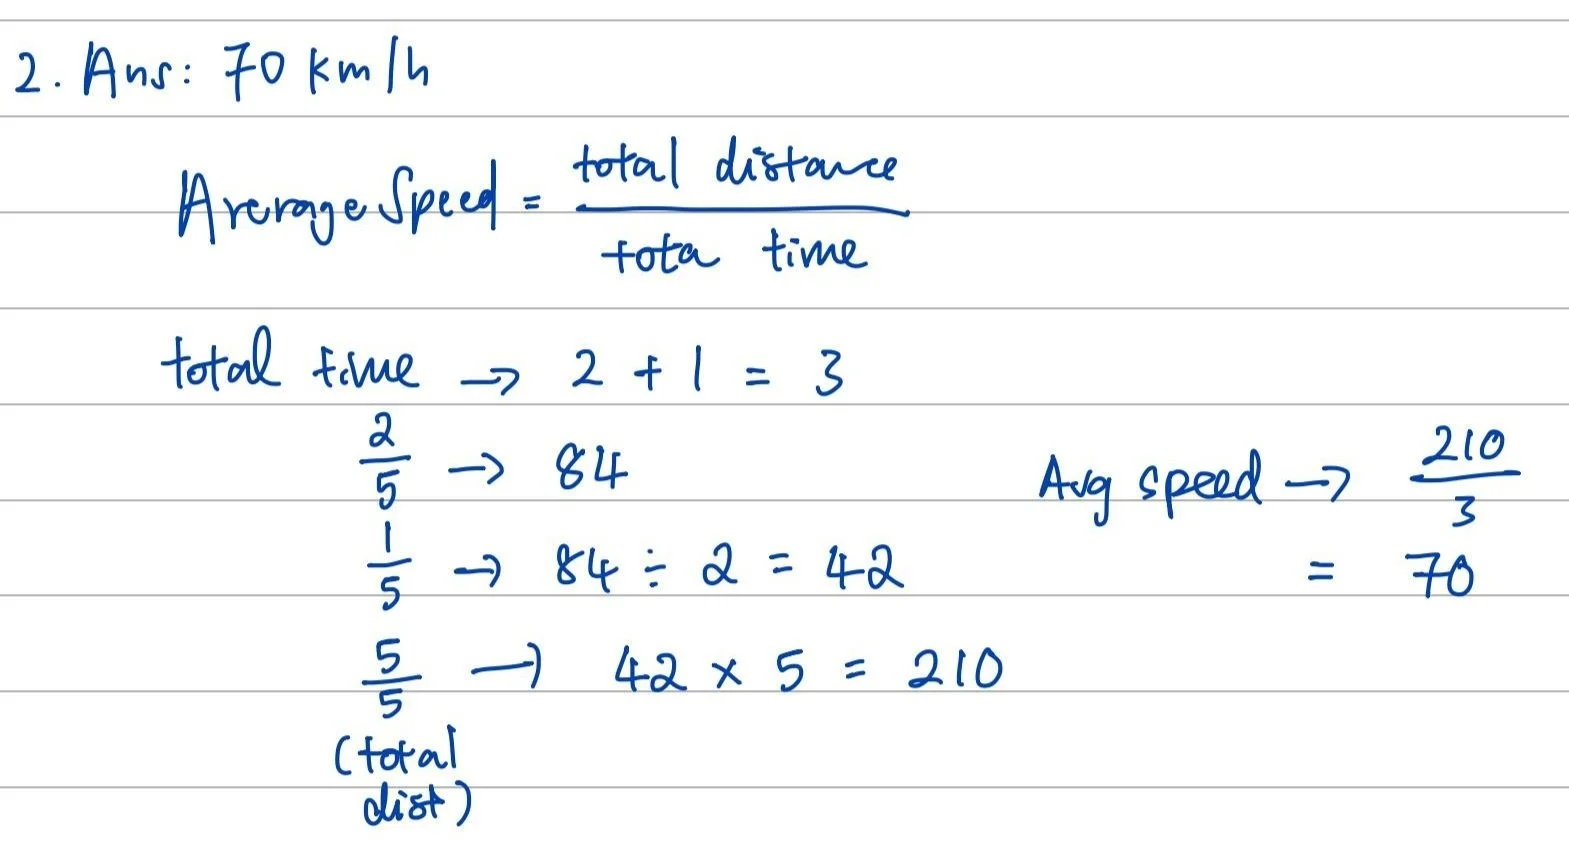 2. Ans: 70 km/h
Average Speed = total distance / tota time
total time → 2 + 1 = 3
2/5 → 84
1/5 → 84 ÷ 2 = 42
5/5 → 42 × 5 = 210
(total
dist)
Avg speed → 210/3
= 70